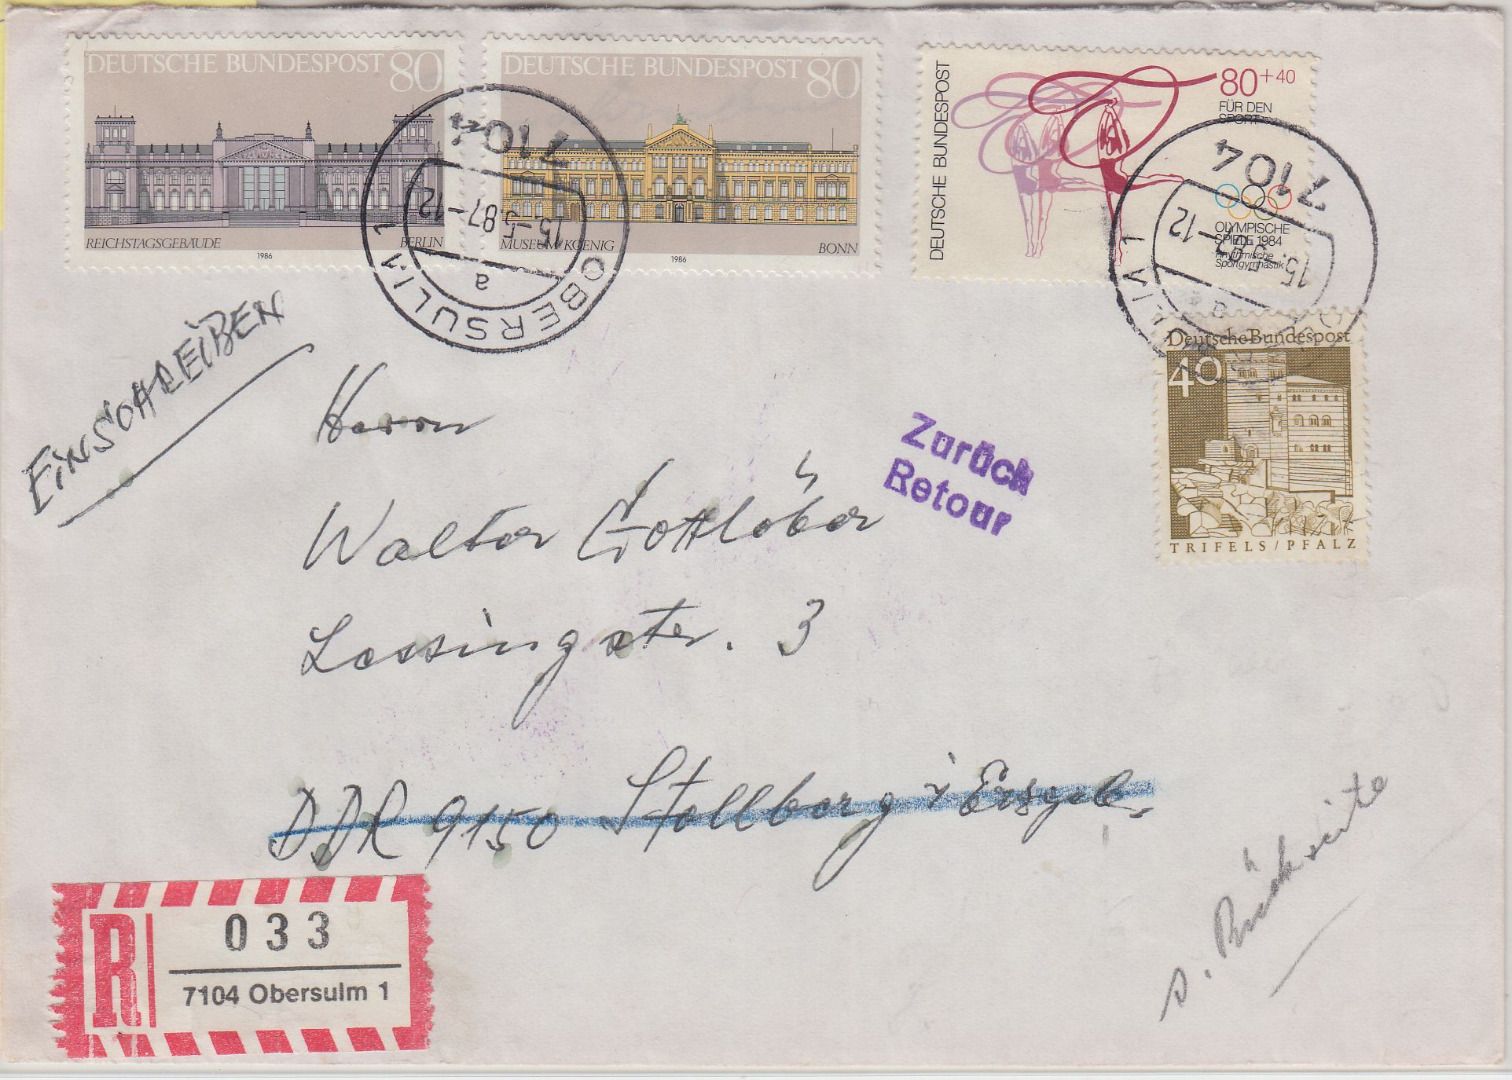 DEUTSCHE BUNDESPOST 80
REICHSTAGSGEBÄUDE BERLIN
1986
DEUTSCHE BUNDESPOST 80
MUSEUM KOENIG BONN
1986
DEUTSCHE BUNDESPOST
80+40
FÜR DEN
SPORT
OLYMPISCHE
SPIELE 1984
Rhythmische
Sportgymnastik
7104
15.-5.87-12
a
OBERSULM 1
7104
15.-5.87-12
a
OBERSULM 1
Deutsche Bundespost
40
TRIFELS/PFALZ
EINSCHREIBEN
Herrn
Walter Gottlöber
Lessingstr. 3
DDR 9150 Stollberg i Erzgeb.
Zurück
Retour
s. Rückseite
R
033
7104 Obersulm 1